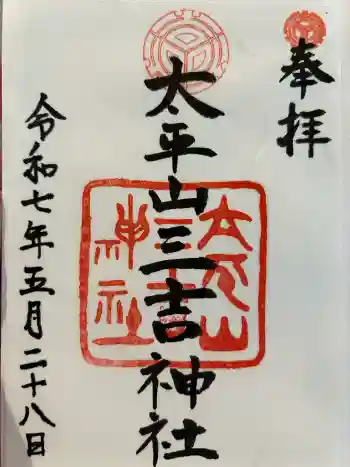 奉拝
太平山三吉神社
太平山
三吉
神社
令和七年五月二十八日